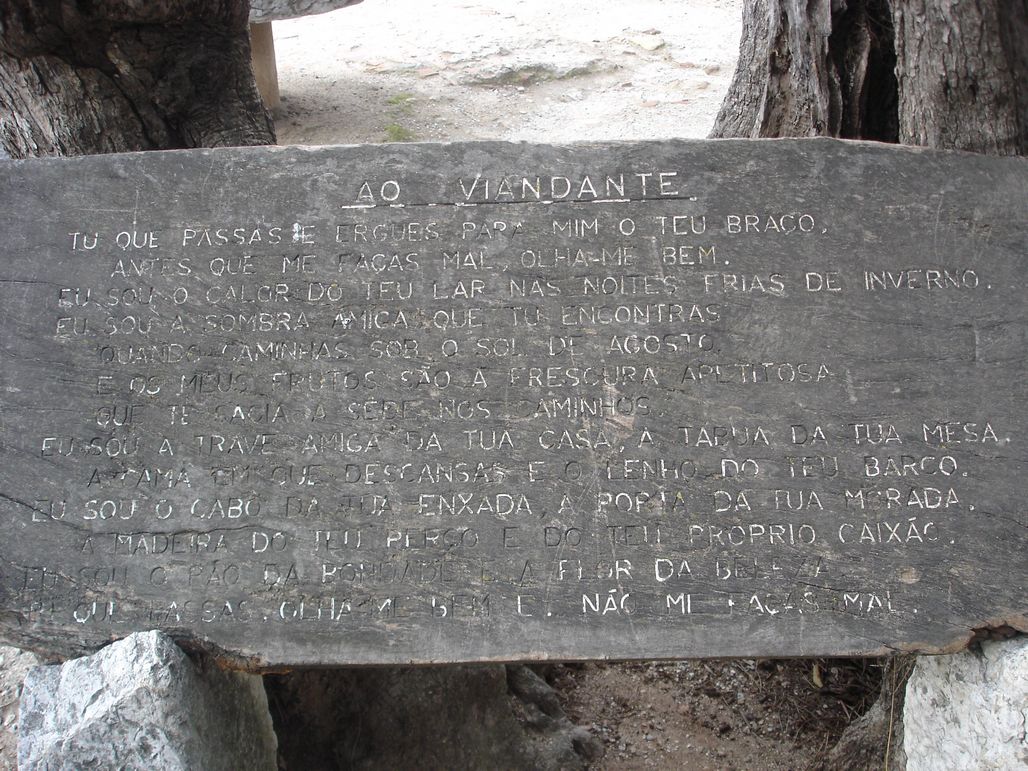 AO VIANDANTE
TU QUE PASSAS E ERGUES PARA MIM O TEU BRAÇO,
ANTES QUE ME FAÇAS MAL, OLHA-ME BEM.
EU SOU O CALOR DO TEU LAR NAS NOITES FRIAS DE INVERNO.
EU SOU A SOMBRA AMIGA QUE TU ENCONTRAS
QUANDO CAMINHAS SOB O SOL DE AGOSTO.
E OS MEUS FRUTOS SÃO A FRESCURA APETITOSA
QUE TE SACIA A SEDE NOS CAMINHOS.
EU SOU A TRAVE AMIGA DA TUA CASA, A TABUA DA TUA MESA.
A CAMA EM QUE DESCANSAS E O LENHO DO TEU BARCO.
EU SOU O CABO DA TUA ENXADA, A PORTA DA TUA MORADA.
A MADEIRA DO TEU BERÇO E DO TEU PRÓPRIO CAIXÃO.
EU SOU O PÃO DA BONDADE E A FLOR DA BELEZA
QUE PASSAS, OLHA-ME BEM E. NÃO ME FAÇAS MAL.